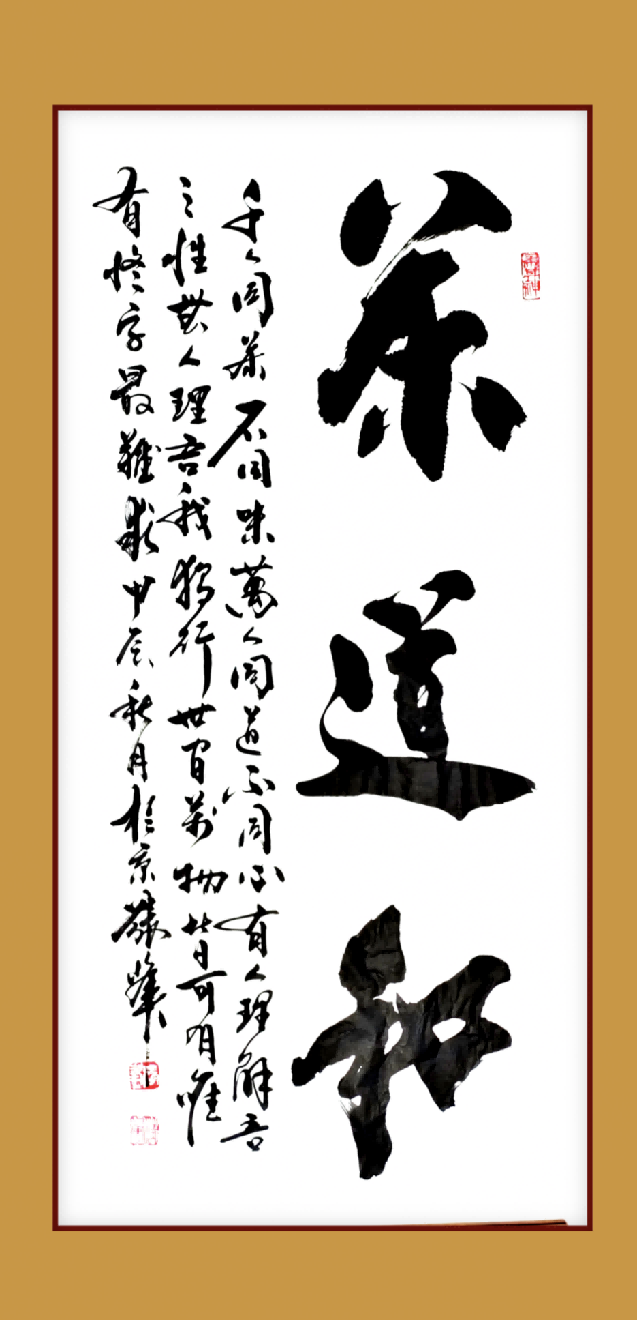 茶道和
千人同茶不同味萬人同道不同心有人理解吾
之性無人理吾我獨行世間万物皆可明唯
有字最難甲辰秋月於京